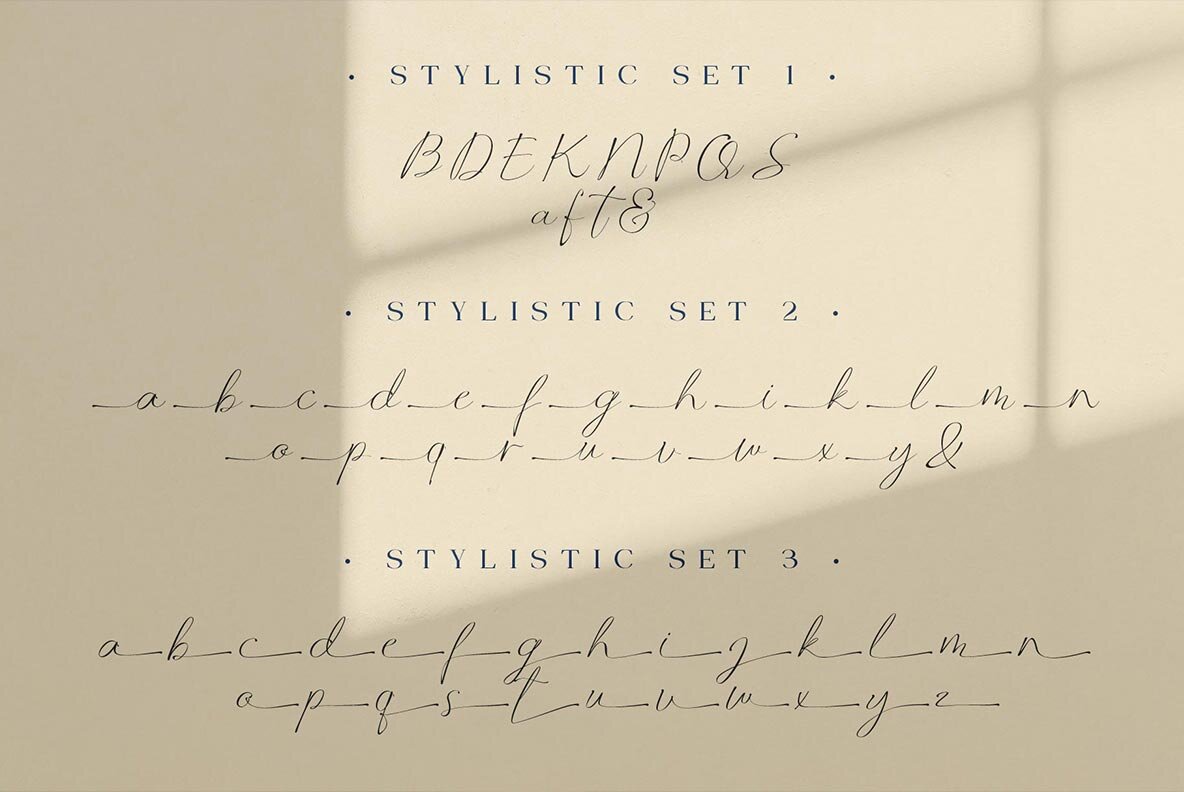 • STYLISTIC SET 1 •
BDEKNPQS
aft&
• STYLISTIC SET 2 •
abcdefghiklmn
opqruvwxy&
• STYLISTIC SET 3 •
abcdefghijklmn
opqstuvwxyz